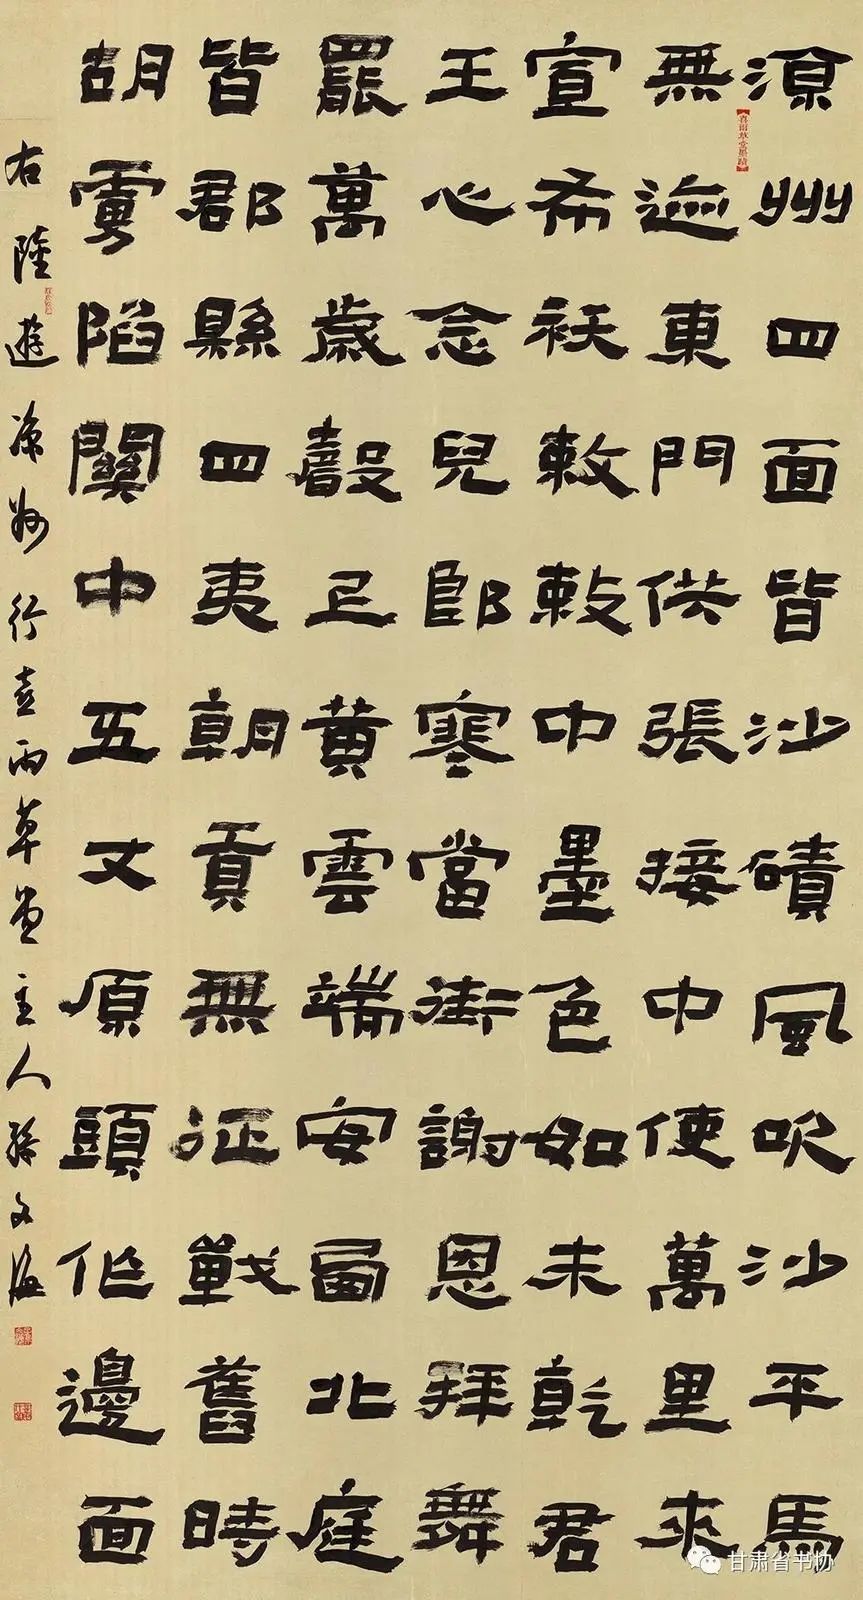 涼州四面皆沙磧風吹沙平馬
無迹東門供張接中使萬里來
宣布袄敕敕中墨色如未乾君
王心念兒郎寒當街謝恩拜舞
罷萬歲聲上黃雲端安西北庭
皆郡縣四夷朝貢無征戰舊時
胡虜陷關中五丈原頭作邊面
右陸遊涼州行喜雨草堂主人文海
喜雨草堂墨蹟
甘肃省书协